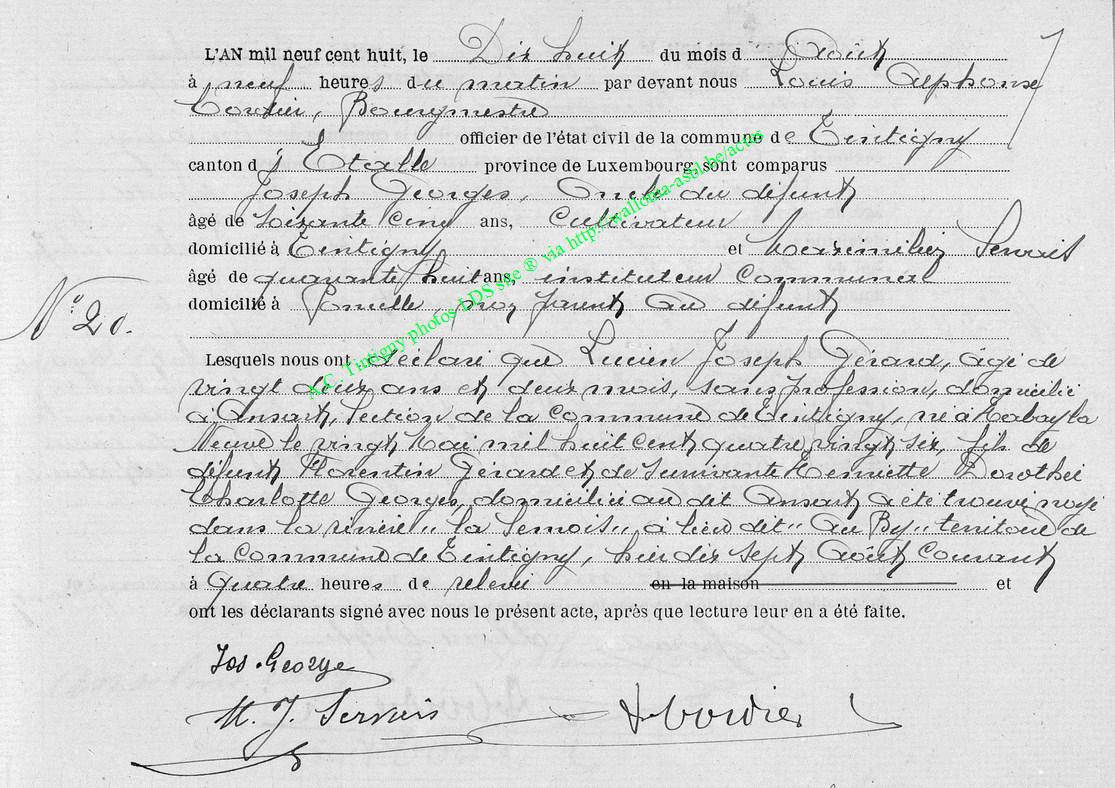 L'AN mil neuf cent huit, le Dix huit du mois d Août
à neuf heures du matin par devant nous Louis Alphonse
Cordier, Bourgmestre
officier de l'état civil de la commune de Tintigny
canton d' Etalle province de Luxembourg, sont comparus
Joseph Georges, Oncle du défunt
âgé de soixante cinq ans, Cultivateur
domicilié à Tintigny et Maximilien Servais
âgé de quarante huit ans, instituteur communal
domicilié à non parent au défunt
N° 20.
Lesquels nous ont déclaré que Lucien Joseph Gérard, âgé de
vingt deux ans et deux mois, sans profession, domicilié
à Ansart, section de la commune de Tintigny, né à Habay la
Neuve le vingt Mai mil huit cent quatre vingt six, fils de
défunt Florentin Gérard et de Survivante Henriette Dorothée
Charlotte Georges, domiciliée au dit Ansart a été trouvé noyé
dans la rivière " la Semois " à lieu dit " Au By " territoire de
la commune de Tintigny, hier dix sept Août courant
à quatre heures de relevée en la maison et
ont les déclarants signé avec nous le présent acte, après que lecture leur en a été faite.
Jos. George
M. J. Servais
Cordier
A.C. Tintigny photos LDS sge ® via http://wallonia-asbl.be/actes